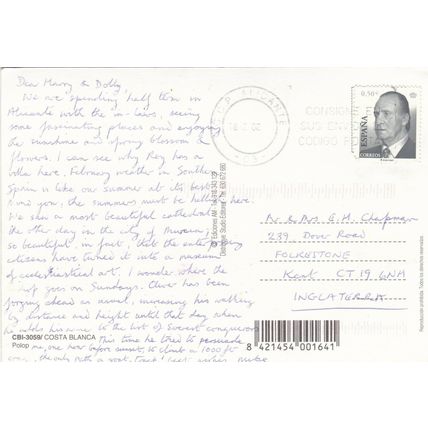 Dear Harry & Dolly,
We are spending half term in
Alicante with the in-laws, seeing
some fascinating places and enjoying
the sunshine and spring blossom &
flowers. I can see why Roy has a
villa here. February weather in Southern
Spain is like our summer at its best.
Mind you, the summers must be here.
We saw a most beautiful cathedral
the other day in the city of Murcia;
so beautiful, in fact, that the
citizens have turned it into a museum
of ecclesiastical art. I wonder where the
goes on Sundays. Oliver has been
forging ahead as usual, increasing his walking
by distance and height until that day when
he adds his name to the list of Everest conquerors
This time he tried to persuade
me, one hour before sunset, to climb a 1000ft
the only with a goat-track! best wishes Mike
CBI-3059/ COSTA BLANCA
Polop
ALICANTE
02
CONSIGNE
SUS ENV
CODIGO
0,50€
ESPAÑA
CORREOS
Dr & Mrs G.H. Chapman
239 Dover Road
FOLKESTONE
Kent CT19 6NH
INGLATERRA
8 421454 001641